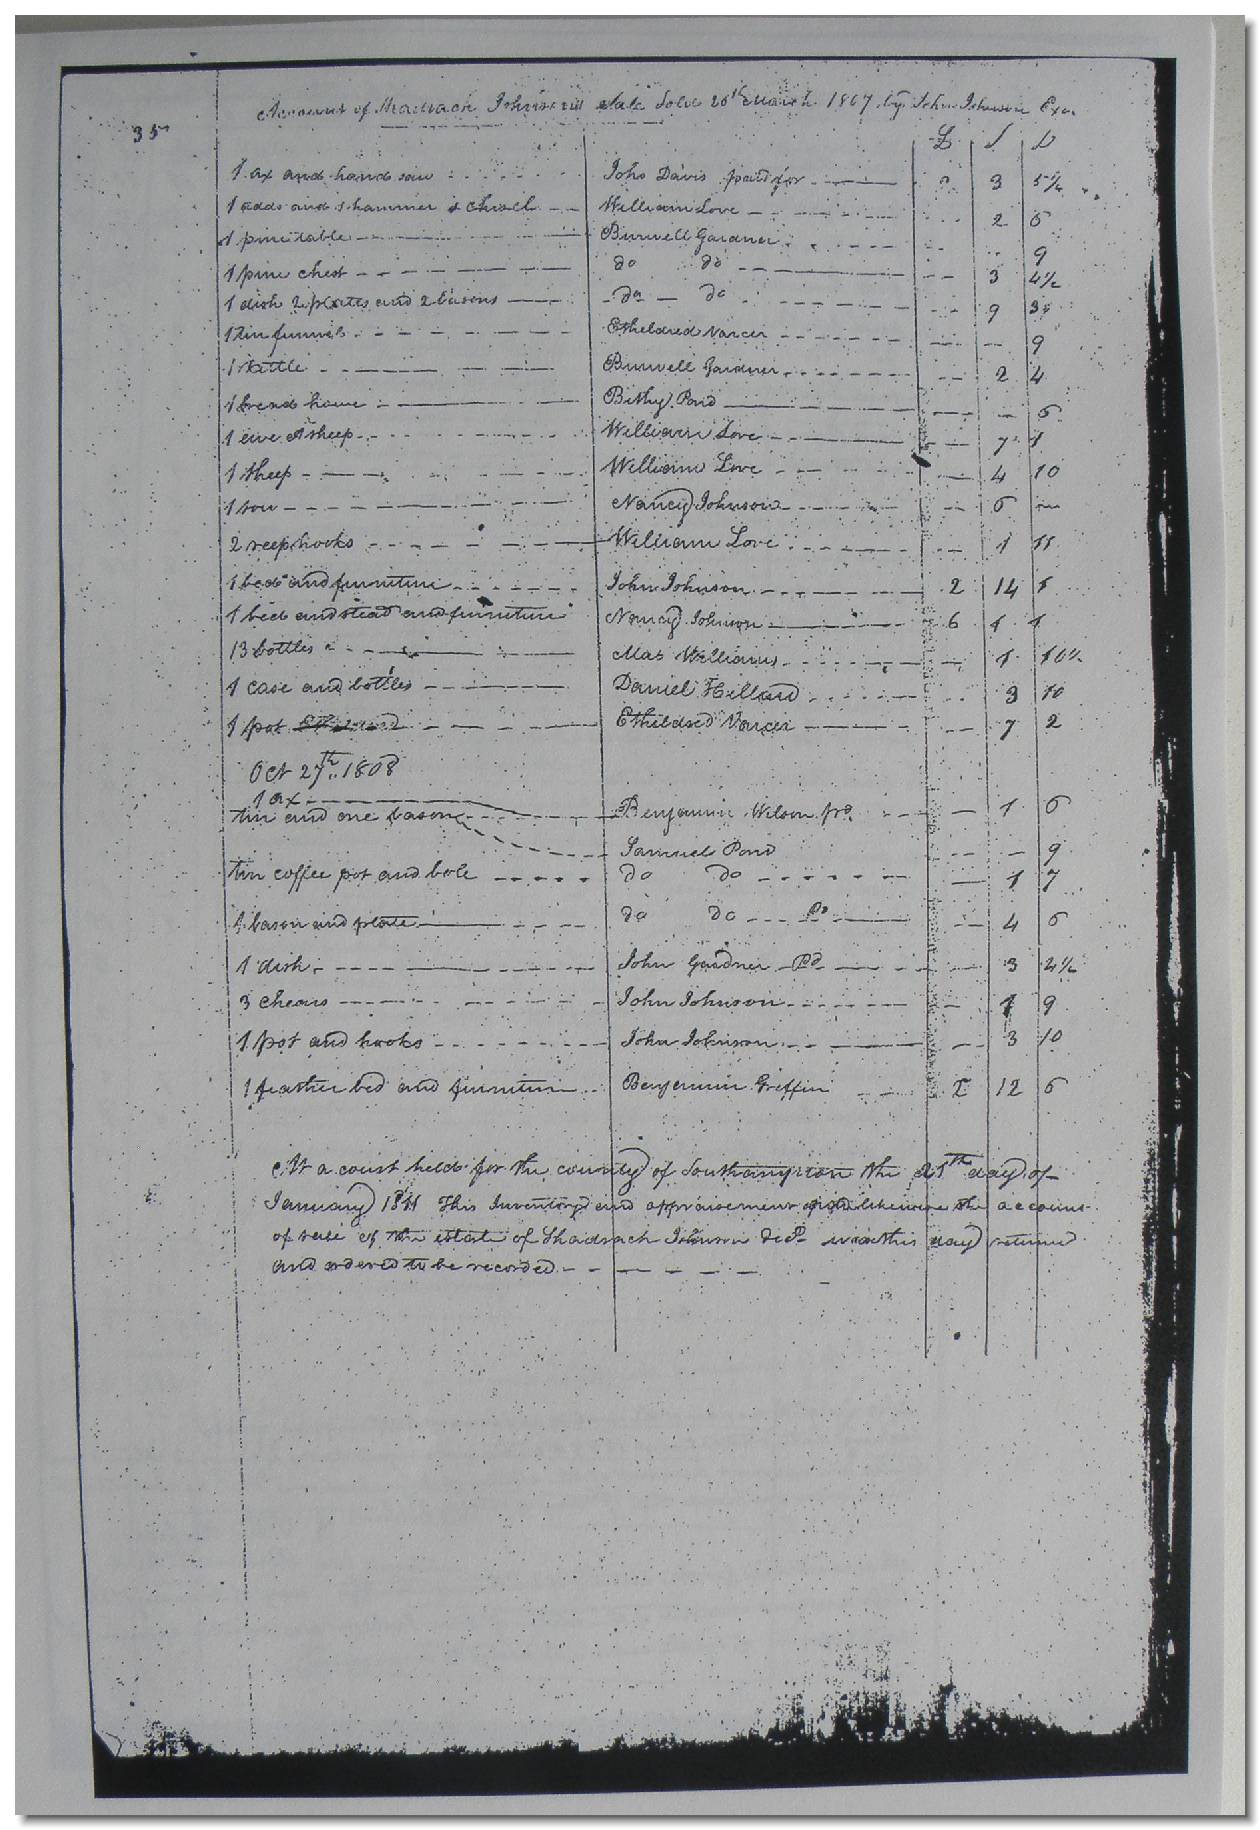 Account of Shadrach Johnson's Sale Sold 26th March 1807 by John Johnson Exr.
35
£ S D
1 ax and hand saw John Davis paid for 3 5½
1 adds and 1 hammer & chisell William Love 2 6
1 pine table Burwell Gardner 9
1 pine chest do do 3 4½
1 dish 2 plates and 2 basons do do 9 3
1 tin funnel Etheldred 9
1 kettle Burwell Gardner 2 4
1 broad howe Bithy Pond 6
1 ewe & sheep William Love 7 1
1 sheep William Love 4 10
1 sow Nancy Johnson 6
2 reep hooks William Love 1 11
1 bed and furniture John Johnson 2 14 1
1 bed and stead and furniture Nancy Johnson 6 1 1
13 bottles Williams 1 10½
1 case and bottles Daniel 3 10
1 pot Etheldred 7 2
Oct 27th 1808
1 ax Benjamin Wilson 1 6
tin and one bason Samuel Pond 9
tin coffee pot and bole do do 1 7
1 bason and plate do do Pd 4 6
1 dish John Gardner Pd 3 4½
3 chears John Johnson 1 9
1 pot and hooks John Johnson 3 10
1 feather bed and furniture Benjamin Griffin 12 6
At a court held for the county of Southampton the 21th day of
January 1811 This Inventory and appraisement and likewise the account
of sale of the estate of Shadrach Johnson decd was this day returned
and ordered to be recorded